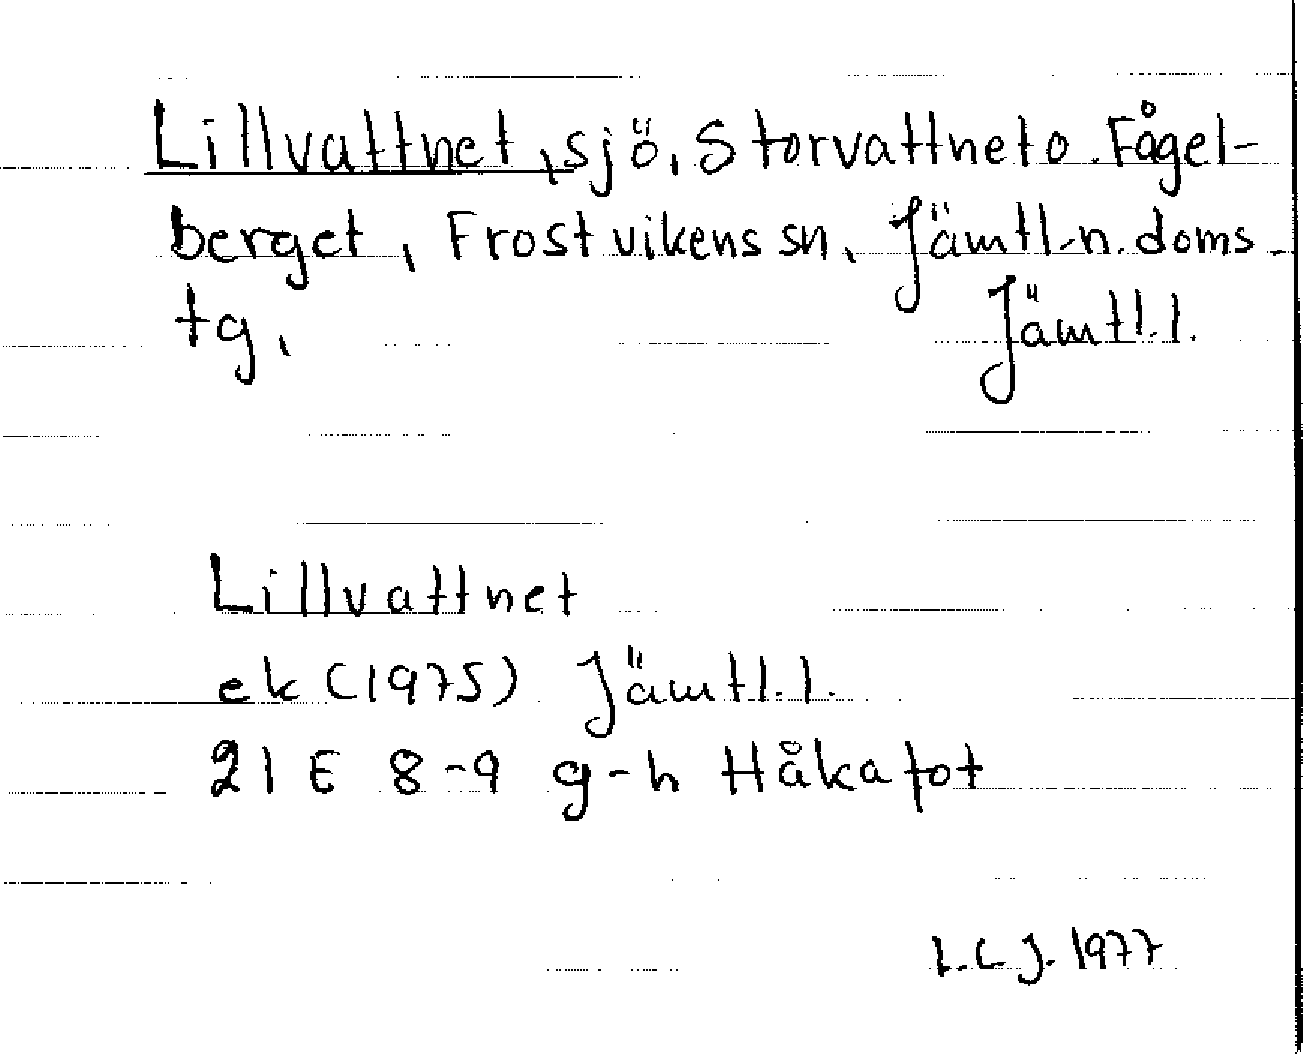 Lillvattnet, sjö, Storvattnet o. Fågel-
berget, Frostvikens sn, Jämtl. n. doms-
tg, Jämtl. l.
Lillvattnet
ek (1975) Jämtl. l.
21 E 8-9 g-h Håkafot
L.C J. 1977